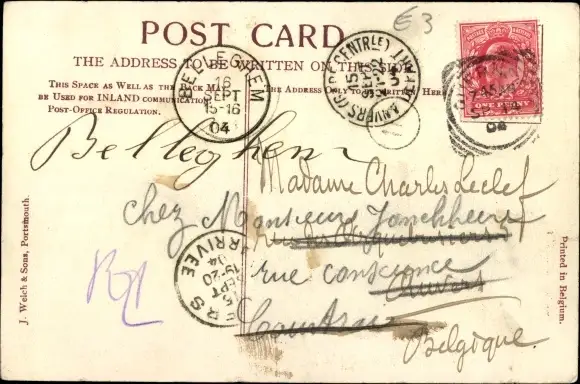 POST CARD
THE ADDRESS TO BE WRITTEN ON THIS
THIS SPACE AS WELL AS THE BACK MAY
BE USED FOR INLAND COMMUNICATION
POST-OFFICE REGULATION.
THE ADDRESS ONLY TO BE WRITTEN HERE
E3
BELLEGHEM
16
SEPT
15-16
04
ANVERS (CENTRE)
15
SEPT
ONE PENNY
04
Belleghem
Madame Charles Leclef
chez Monsieur
rue conscience
Anvers
Belgique
ARRIVEE
SEPT
04
J. Welch & Sons, Portsmouth.
Printed in Belgium.